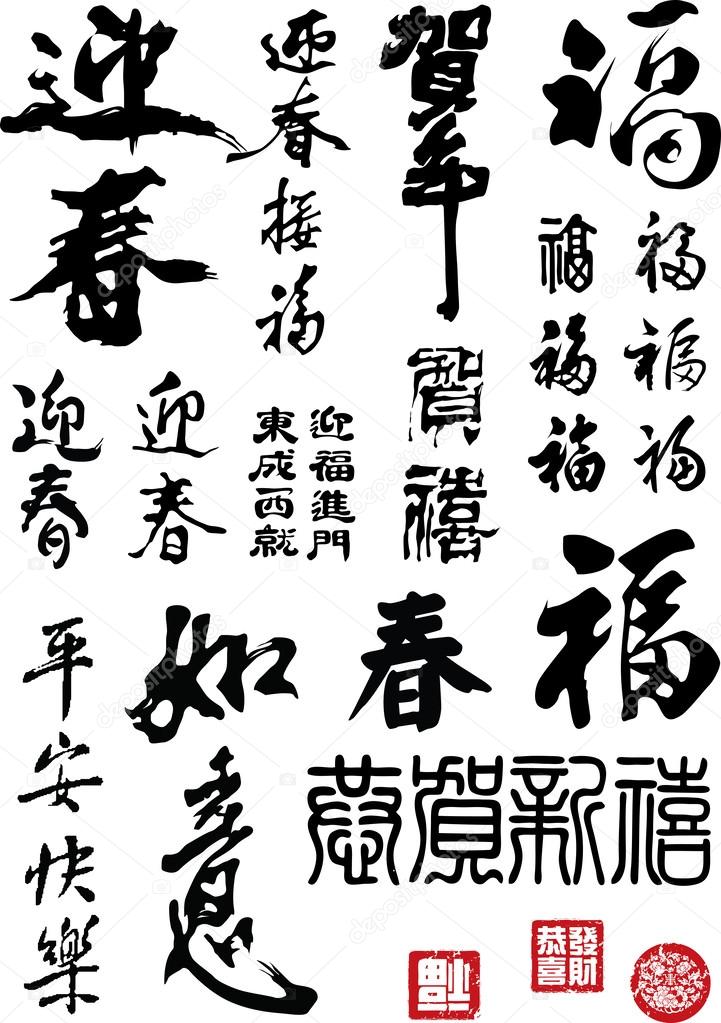 迎春
迎春接福
賀年
福
福
福
福
福
福
福
迎春
迎春
迎福進門
東成西就
賀禧
福
平安快樂
如意
春
恭賀新禧
福
恭喜
發財
depositphotos